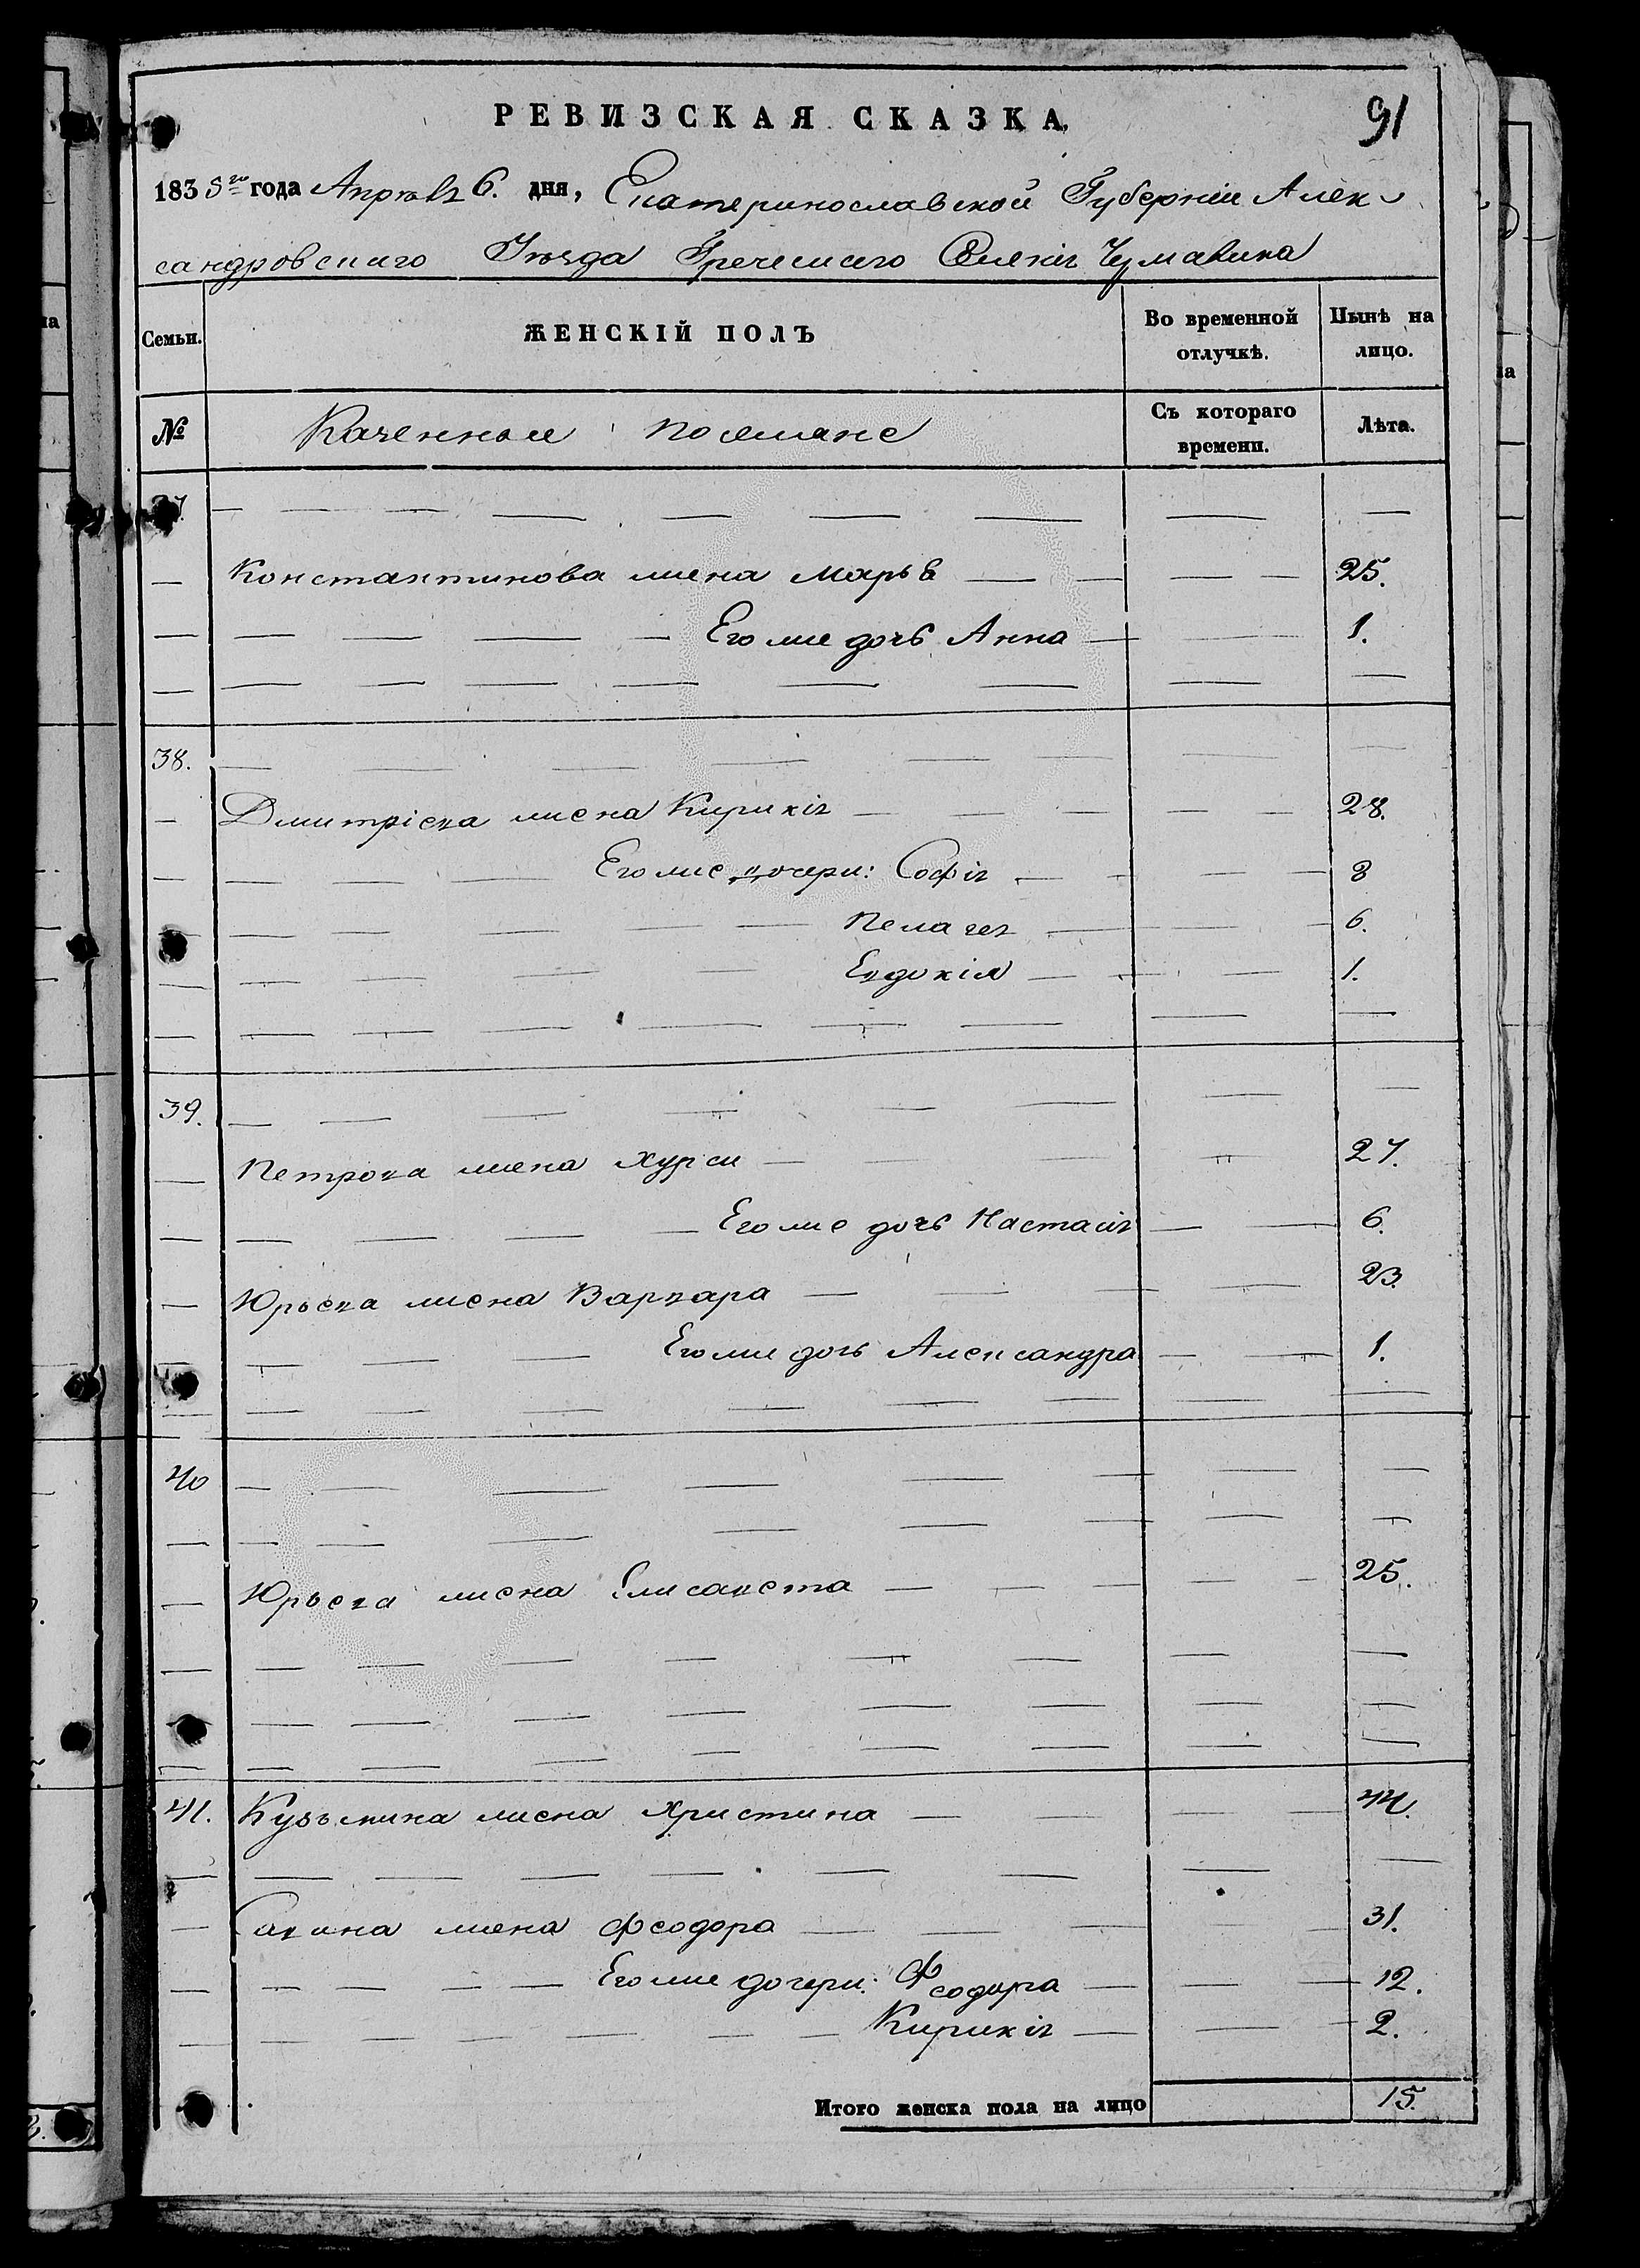 РЕВИЗСКАЯ СКАЗКА,
91
1835го года Апрѣля 6. дня, Екатеринославской Губерніи Алек-
сандровскаго Уѣзда Греческаго Селенія
Семьи.
ЖЕНСКІЙ ПОЛЪ
Во временной отлучкѣ.
Нынѣ на лицо.
№
Казенные поселяне
Съ котораго времени.
Лѣта.
37.
Константинова жена Марья 25.
Его же дочь Анна 1.
38.
Дмитріева жена Кирикія 28.
Его же дочери: Софія 8
Пелагея 6.
Евдокія 1.
39.
Петрова жена Хурси 27.
Его же дочь Настасія 6.
Юрьева жена Варвара 23.
Его же дочь Александра 1.
40
Юрьева жена Елисавета 25.
41. Кузьмина жена Христина 44.
Савина жена Феодора 31.
Его же дочери: Феодора 12.
Кирикія 2.
Итого женска пола на лицо 15.